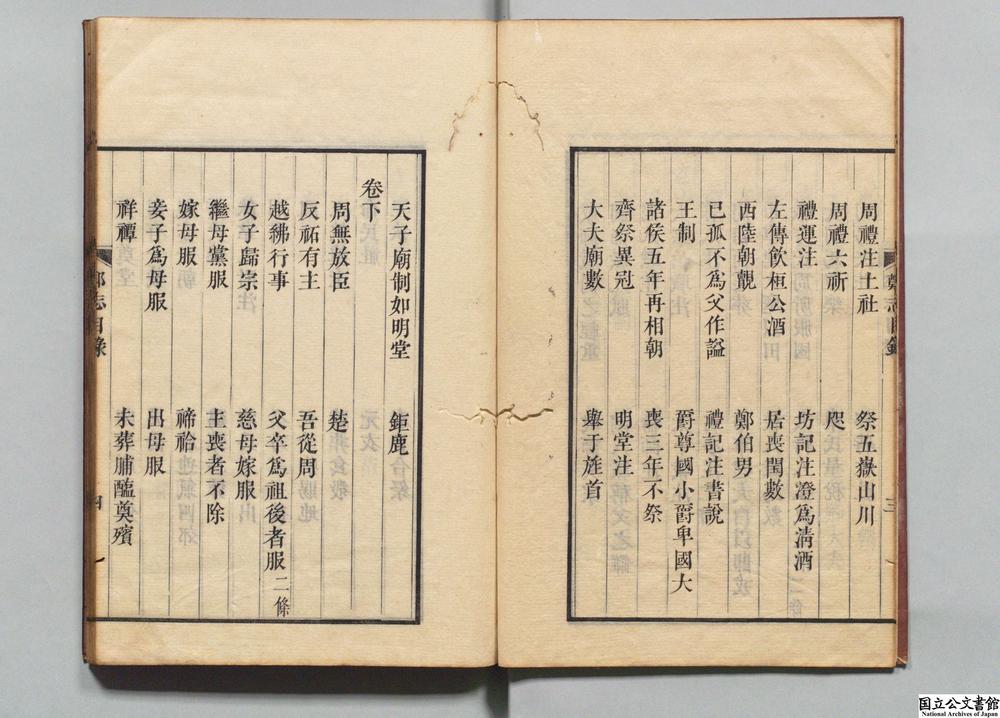 周禮注土社　祭五嶽山川
周禮六祈　咫
禮運注　坊記注澄爲淸酒
左傳飲桓公酒　居喪閏數
西陸朝覿　鄭伯男
已孤不爲父作謚　禮記注書說
王制　爵尊國小爵卑國大
諸侯五年再相朝　喪三年不祭
齊祭異冠　明堂注
大夫廟數　舉于旌首
鄭志目錄　三
天子廟制如明堂　鉅鹿
卷下
周無放臣　楚
反祏有主　吾從周
越紼行事　父卒爲祖後者服二條
女子歸宗　慈母嫁服
繼母黨服　主喪者不除
嫁母服　禘祫
妾子爲母服　出母服
祥禫　未葬脯醢奠殯
鄭志目錄　四
国立公文書館
National Archives of Japan